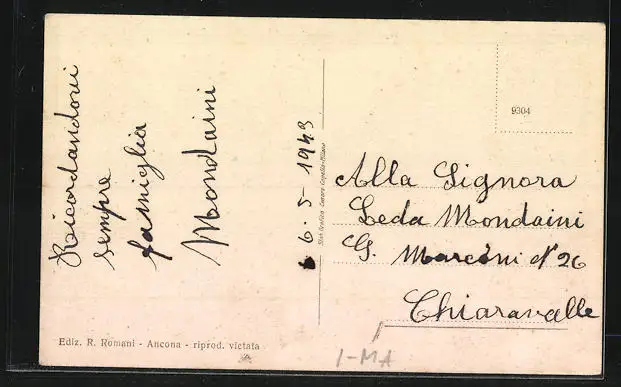 Ricordandovi
sempre
famiglia
Mondaini
6-5-1943
Stab. Grafico Cesare Capello-Milano
9304
Alla Signora
Leda Mondaini
G. Marconi N° 26
Chiaravalle
Ediz. R. Romani - Ancona - riprod. vietata
I-MA